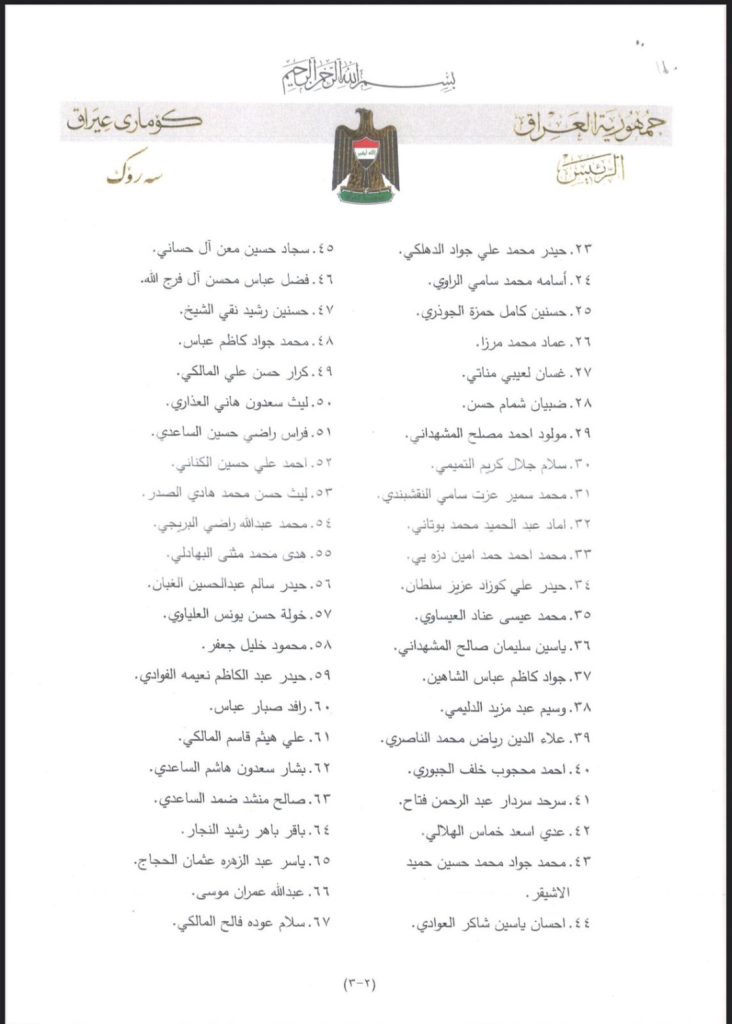 بسم الله الرحمن الرحيم
جمهورية العراق
الرئيس
كۆماری عێراق
سه رۆک
الله أكبر
٢٣. حيدر محمد علي جواد الدهلكي.
٢٤. أسامه محمد سامي الراوي.
٢٥. حسنين كامل حمزة الجوذري.
٢٦. عماد محمد مرزا.
٢٧. غسان لعيبي مناتي.
٢٨. ضبيان شمام حسن.
٢٩. مولود احمد مصلح المشهداني.
٣٠. سلام جلال كريم التميمي.
٣١. محمد سمير عزت سامي النقشبندي.
٣٢. اماد عبد الحميد محمد بوتاني.
٣٣. محمد احمد حمد امين دزه يي.
٣٤. حيدر علي كوزاد عزيز سلطان.
٣٥. محمد عيسى عناد العيساوي.
٣٦. ياسين سليمان صالح المشهداني.
٣٧. جواد كاظم عباس الشاهين.
٣٨. وسيم عبد مزيد الدليمي.
٣٩. علاء الدين رياض محمد الناصري.
٤٠. احمد محجوب خلف الجبوري.
٤١. سرحد سردار عبد الرحمن فتاح.
٤٢. عدي اسعد خماس الهلالي.
٤٣. محمد جواد محمد حسين حميد
الاشيقر.
٤٤. احسان ياسين شاكر العوادي.
٤٥. سجاد حسين معن آل حساني.
٤٦. فضل عباس محسن آل فرج الله.
٤٧. حسنين رشيد نقي الشيخ.
٤٨. محمد جواد كاظم عباس.
٤٩. كرار حسن علي المالكي.
٥٠. ليث سعدون هاني العذاري.
٥١. فراس راضي حسين الساعدي.
٥٢. احمد علي حسين الكناني.
٥٣. ليث حسن محمد هادي الصدر.
٥٤. محمد عبدالله راضي البريجي.
٥٥. هدى محمد مثنى البهادلي.
٥٦. حيدر سالم عبدالحسين الغبان.
٥٧. خولة حسن يونس العلياوي.
٥٨. محمود خليل جعفر.
٥٩. حيدر عبد الكاظم نعيمه الفوادي.
٦٠. رافد صبار عباس.
٦١. علي هيثم قاسم المالكي.
٦٢. بشار سعدون هاشم الساعدي.
٦٣. صالح منشد ضمد الساعدي.
٦٤. باقر باهر رشيد النجار.
٦٥. ياسر عبد الزهره عثمان الحجاج.
٦٦. عبدالله عمران موسى.
٦٧. سلام عوده فالح المالكي.
(٢-٣)